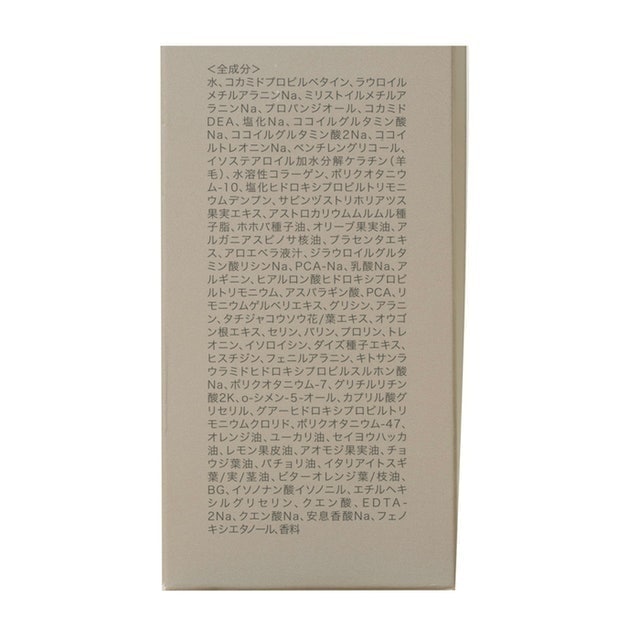 ＜全成分＞
水、コカミドプロピルベタイン、ラウロイル
メチルアラニンNa、ミリストイルメチルア
ラニンNa、プロパンジオール、コカミド
DEA、塩化Na、ココイルグルタミン酸
Na、ココイルグルタミン酸2Na、ココイ
ルトレオニンNa、ペンチレングリコール、
イソステアロイル加水分解ケラチン（羊
毛）、水溶性コラーゲン、ポリクオタニウ
ム-10、塩化ヒドロキシプロピルトリモニ
ウムデンプン、サピンヅストリホリアツス
果実エキス、アストロカリウムムルムル種
子脂、ホホバ種子油、オリーブ果実油、ア
ルガニアスピノサ核油、プラセンタエキ
ス、アロエベラ液汁、ジラウロイルグルタ
ミン酸リシンNa、PCA-Na、乳酸Na、ア
ルギニン、ヒアルロン酸ヒドロキシプロピ
ルトリモニウム、アスパラギン酸、PCA、リ
モニウムゲルベリエキス、グリシン、アラニ
ン、タチジャコウソウ花/葉エキス、オウゴ
ン根エキス、セリン、バリン、プロリン、トレ
オニン、イソロイシン、ダイズ種子エキス、
ヒスチジン、フェニルアラニン、キトサンラ
ウラミドヒドロキシプロピルスルホン酸
Na、ポリクオタニウム-7、グリチルリチン
酸2K、o-シメン-5-オール、カプリル酸グ
リセリル、グアーヒドロキシプロピルトリ
モニウムクロリド、ポリクオタニウム-47、
オレンジ油、ユーカリ油、セイヨウハッカ
油、レモン果皮油、アオモジ果実油、チョ
ウジ葉油、パチョリ油、イタリアイトスギ
葉/実/茎油、ビターオレンジ葉/枝油、
BG、イソノナン酸イソノニル、エチルヘキ
シルグリセリン、クエン酸、EDTA-
2Na、クエン酸Na、安息香酸Na、フェノ
キシエタノール、香料